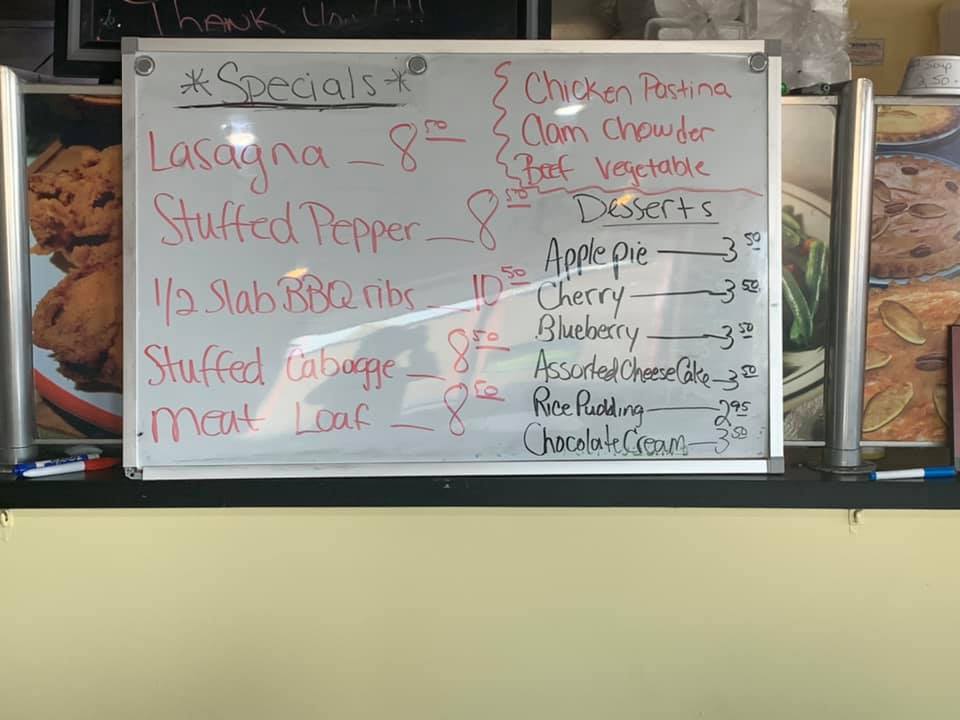 THANK
*Specials*
Lasagna — 8 50
Stuffed Pepper — 8 50
1/2 Slab BBQ ribs — 10 50
Stuffed Cabagge — 8 50
Meat Loaf — 8 50
Chicken Pastina
Clam Chowder
Beef Vegetable
Desserts
Apple pie — 3 50
Cherry — 3 50
Blueberry — 3 50
Assorted Cheese Cake — 3 50
Rice Pudding — 2 95
Chocolate Cream — 3 50
Soup